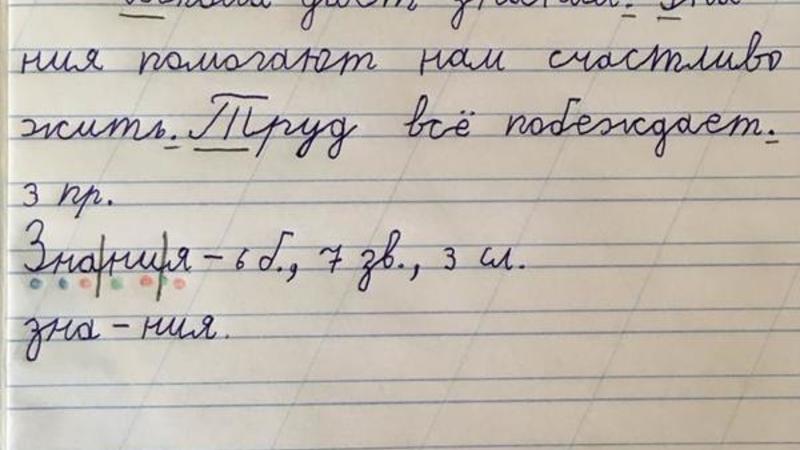 даёт знания. Зна-
ния помогают нам счастливо
жить. Труд всё побеждает.
3 пр.
Зна|ни|я – 6 б., 7 зв., 3 сл.
зна – ния.